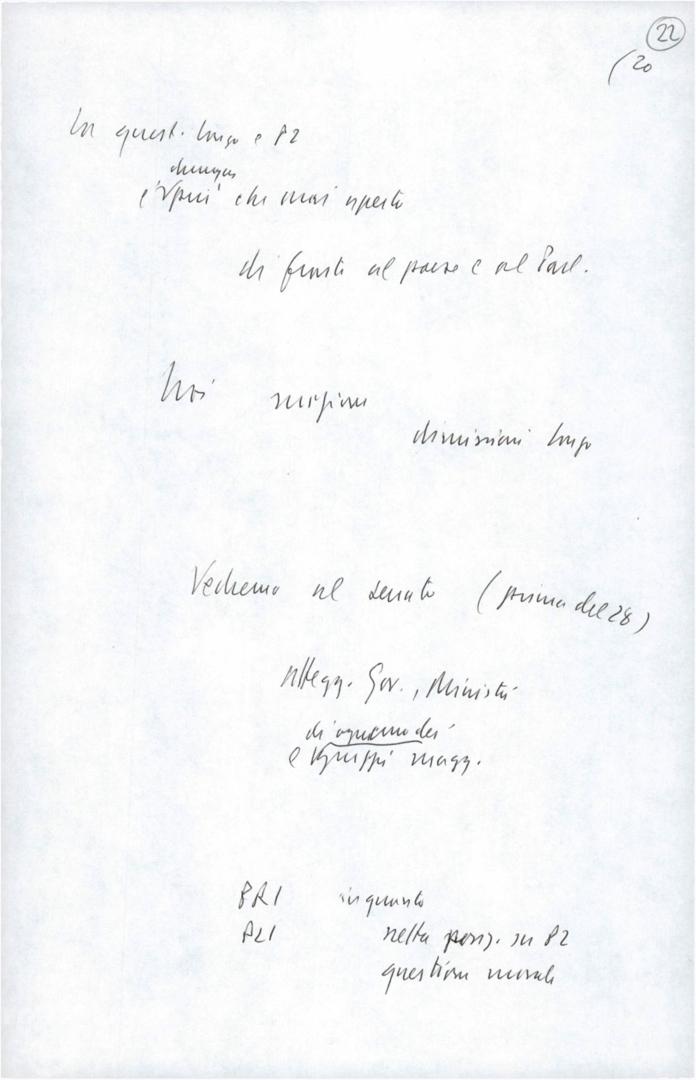 22
(20
La quest. Longo e P2
dunque
è più che mai aperta
di fronte al paese e al Parl.
Noi
dimissioni Longo
Vedremo al Senato (prima del 28)
Attegg. Gov., Ministri
di ognuno dei
e gruppi magg.
PRI in quanto
PLI netta posiz. su P2
questione morale